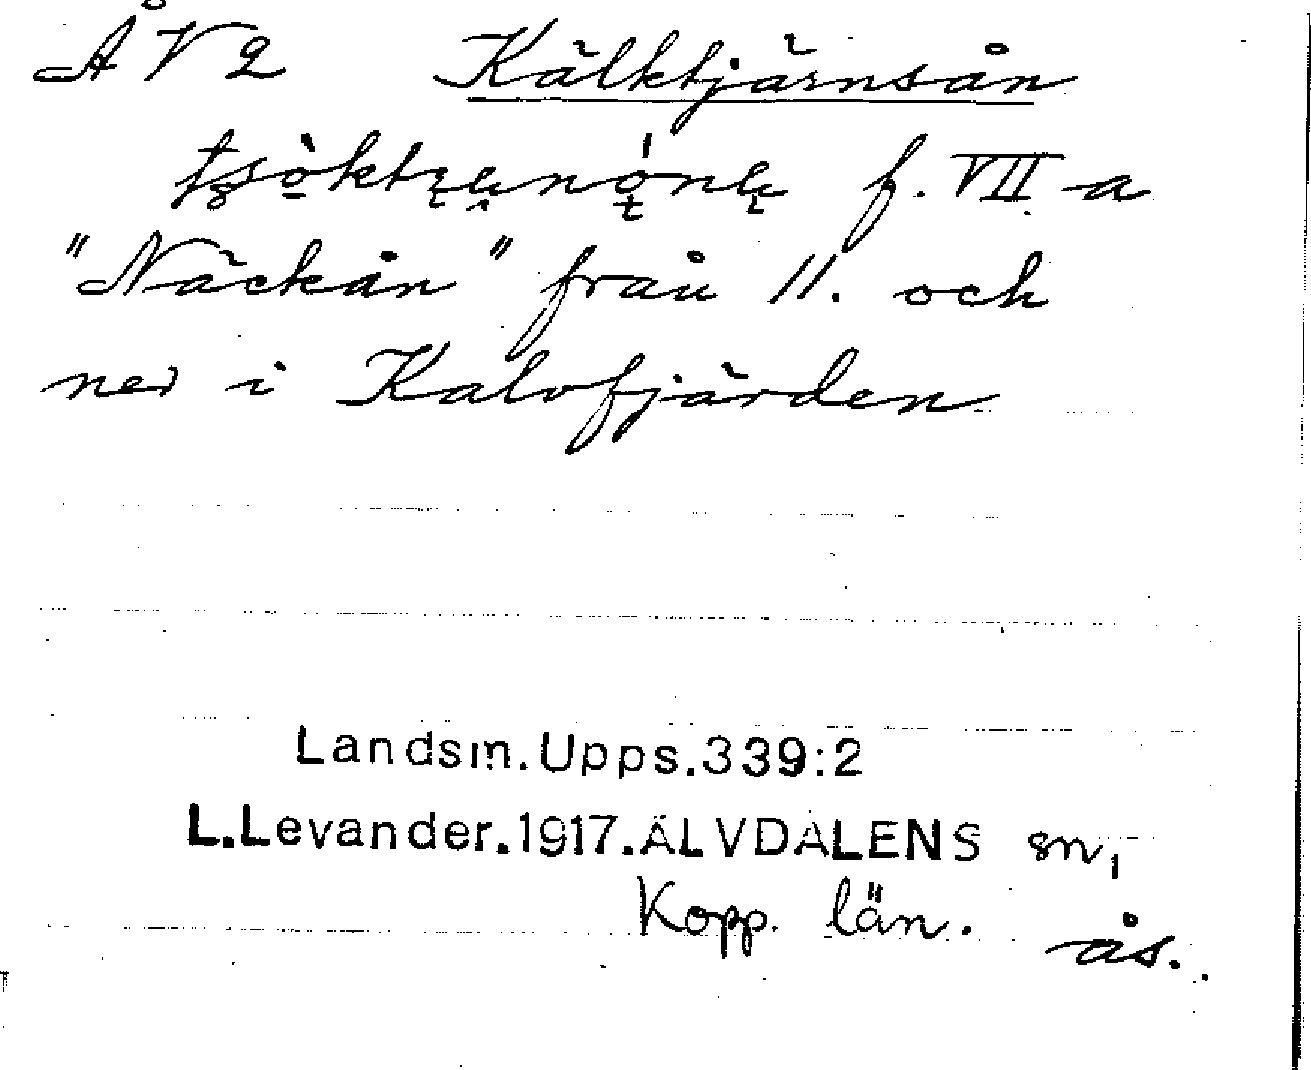 Å V 2 Kälktjärnsån
f. VII a
"Näckån" från 11. och
ner i Kalvfjärden
Landsm.Upps.339:2
L.Levander.1917.ÄLVDALENS sn,
Kopp. län.
ås.